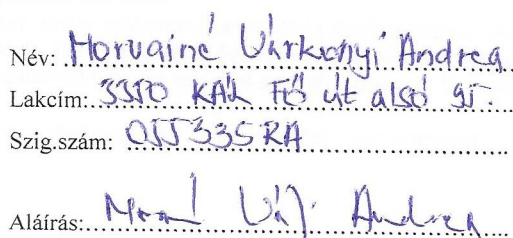 Név: Horvainé Várkonyi Andrea
Lakcím: 3350 KÁL Fő út alsó 95.
Szig.szám: 055335RA
Aláírás: Andrea